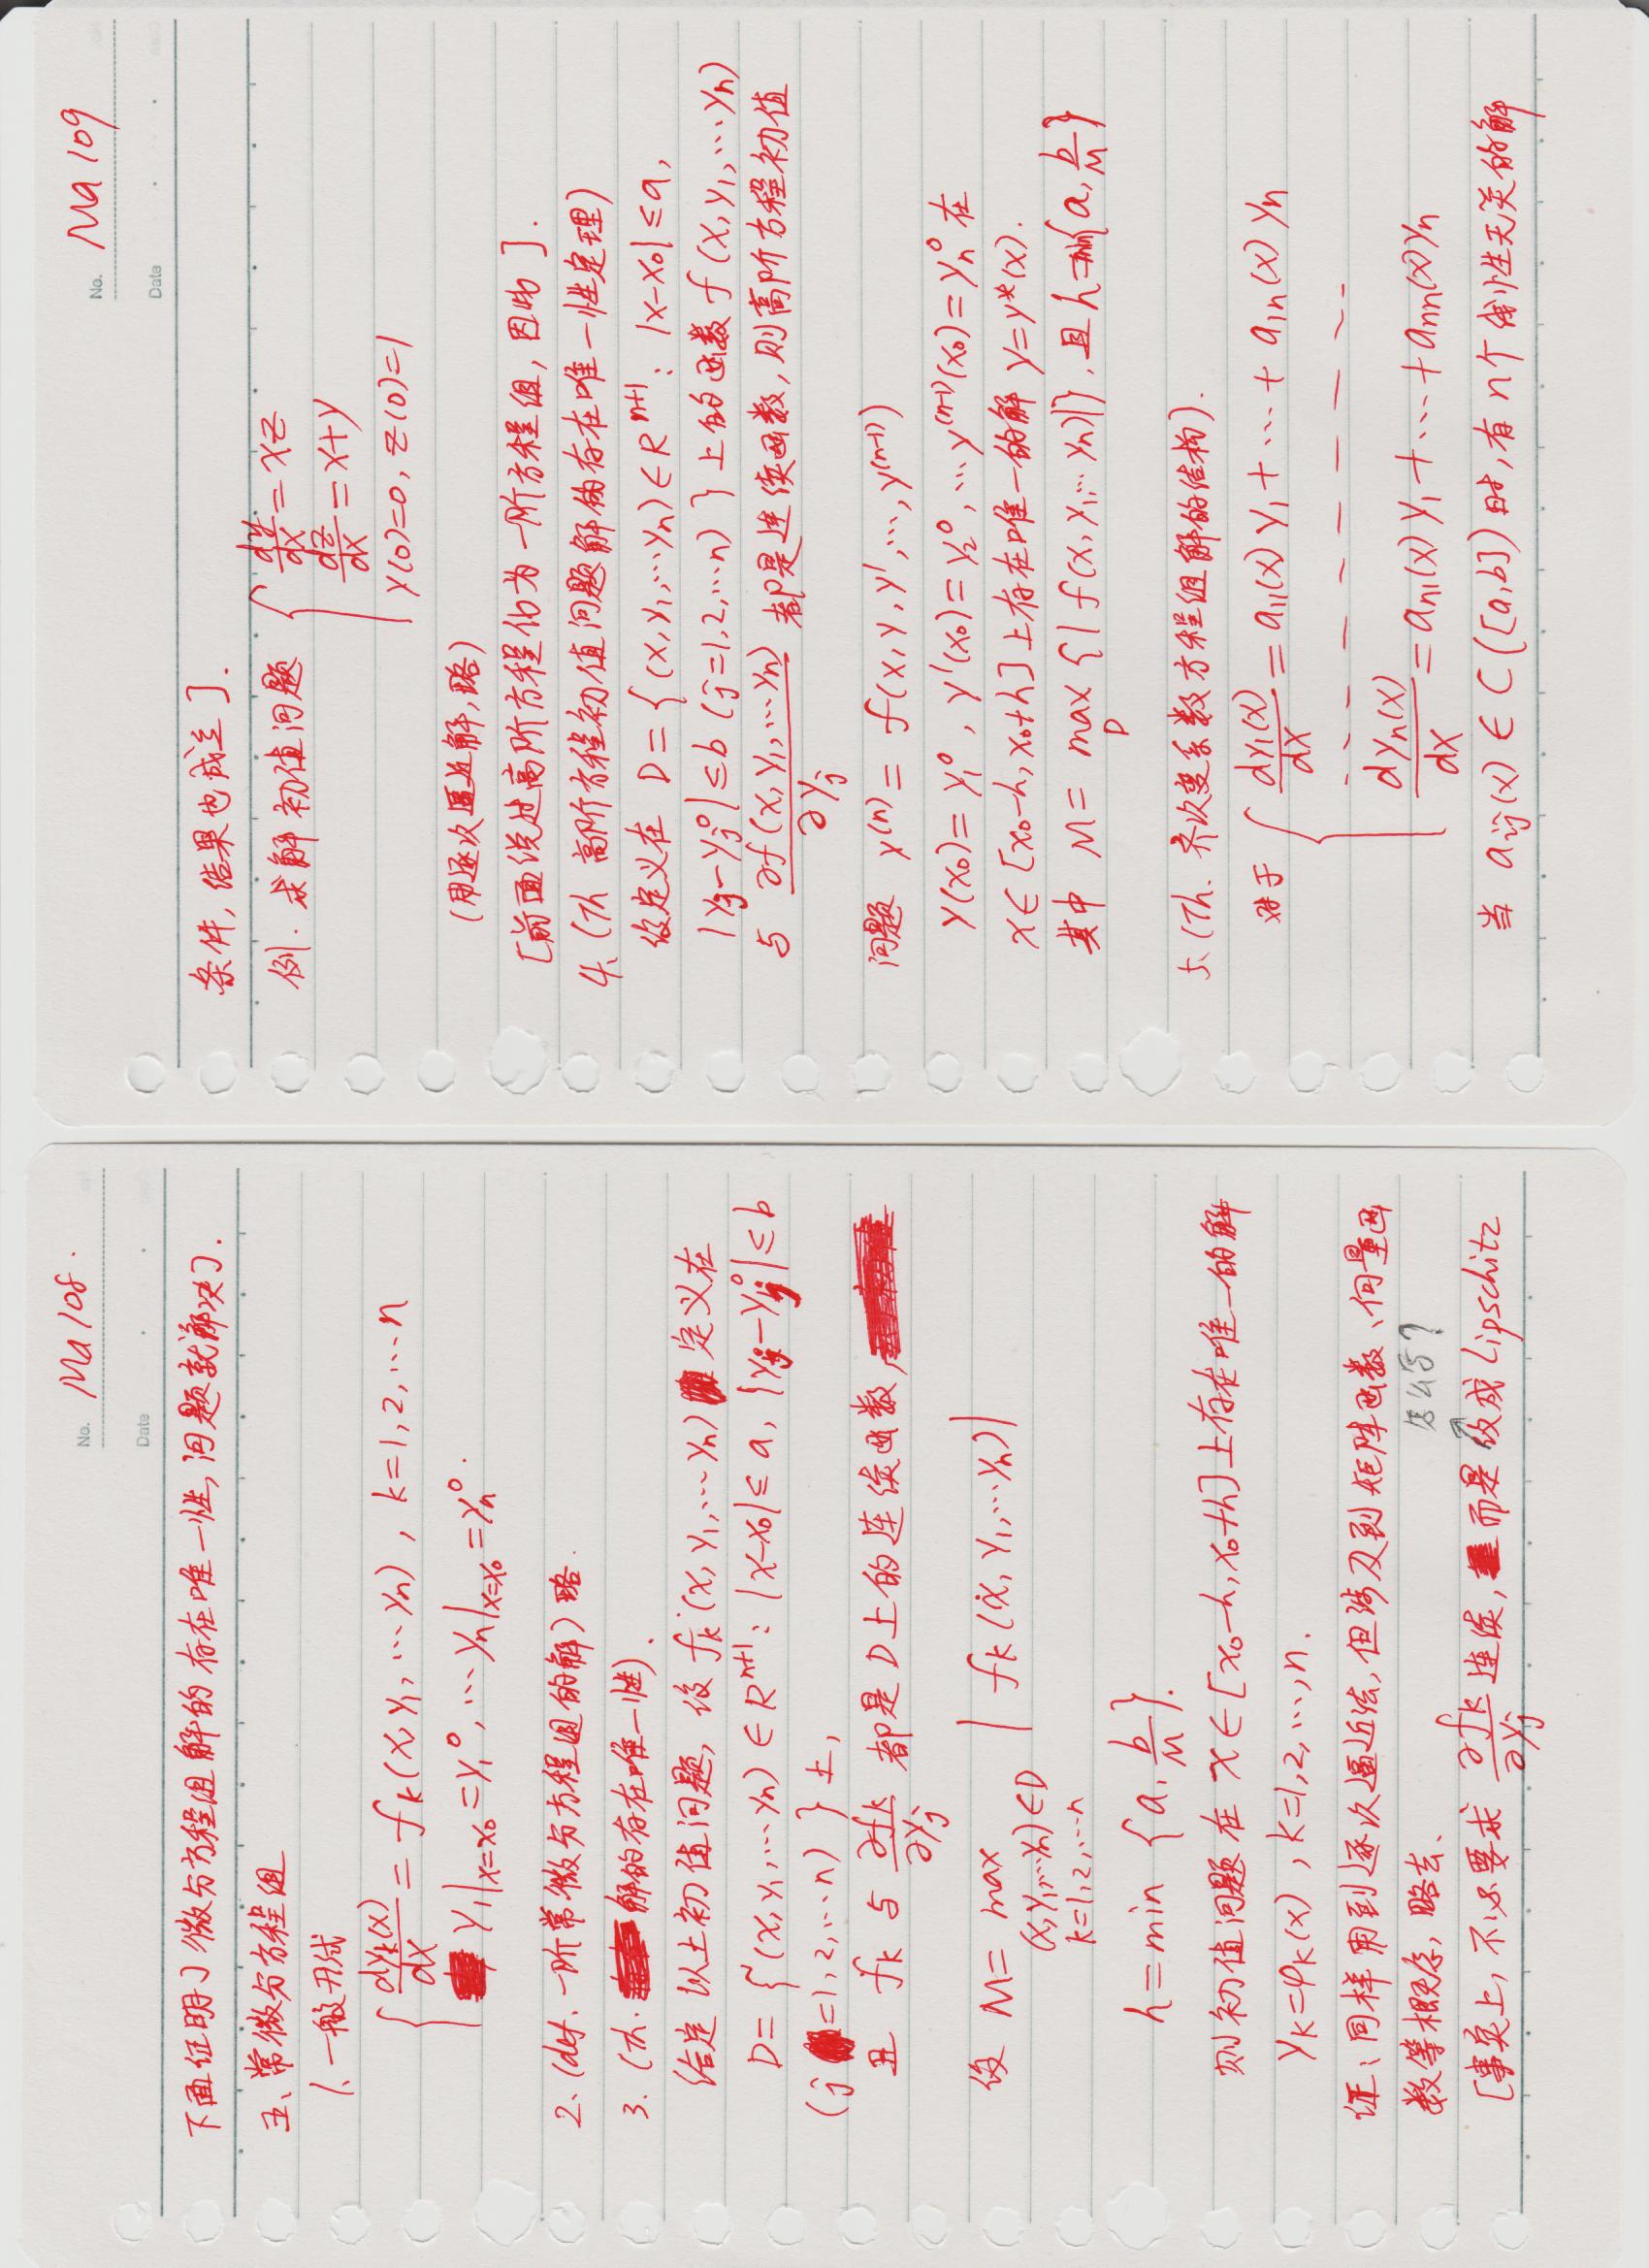 No. Ma 108.
Date
下面证明了微分方程组解的存在唯一性,问题就解决了.
五、常微分方程组
1、一般形式
{ dyk(x)/dx = fk(x, y1, … yn), k=1, 2, … n
y1|x=x0 = y1^0, … yn|x=x0 = yn^0.
2、(def、一阶常微分方程组的解) 略.
3. (th. 解的存在唯一性).
给定以上初值问题, 设 fk(x, y1, … yn) 定义在
D = {(x, y1, … yn) ∈ R^(n+1): |x-x0| ≤ a, |yj - yj^0| ≤ b
(j =1, 2, … n) } 上,
且 fk 与 ∂fk/∂yj 都是 D 上的连续函数,
设 M = max |fk(x, y1, … yn)|
(x, y1, … yn) ∈ D
k=1, 2, … n
h = min {a, b/M}.
则初值问题在 x ∈ [x0-h, x0+h] 上存在唯一的解
yk = φk(x), k=1, 2, …, n.
证: 同样用到逐次逼近法, 但涉及到矩阵函数、向量函
数等概念, 略去.
怎么写?
[事实上, 不必要求 ∂fk/∂yj 连续, 而是改成 Lipschitz
No. Ma 109
Date
条件, 结果也成立].
例. 求解初值问题 { dy/dx = xz
dz/dx = x+y
y(0)=0, z(0)=1
(用逐次逼近解, 略)
[前面说过高阶方程化为一阶方程组, 因此].
4、(Th 高阶方程初值问题解的存在唯一性定理)
设定义在 D = {(x, y1, … yn) ∈ R^(n+1): |x-x0| ≤ a,
|yj - yj^0| ≤ b (j=1, 2, … n) } 上的函数 f(x, y1, … yn)
与 ∂f(x, y1, … yn)/∂yj 都是连续函数, 则高阶方程初值
问题 y^(n) = f(x, y, y', …, y^(n-1))
y(x0) = y1^0, y'(x0) = y2^0, … y^(n-1)(x0) = yn^0 在
x ∈ [x0-h, x0+h] 上存在唯一的解 y = y*(x).
其中 M = max {|f(x, y1, … yn)|}, 且 h = min{a, b/M}
D
5、(Th. 齐次变系数方程组解的结构).
对于 { dy1(x)/dx = a11(x) y1 + … + a1n(x) yn
- - - - - - - - - -
dyn(x)/dx = an1(x) y1 + … + ann(x) yn
当 aij(x) ∈ C([a, b]) 时, 有 n 个线性无关的解